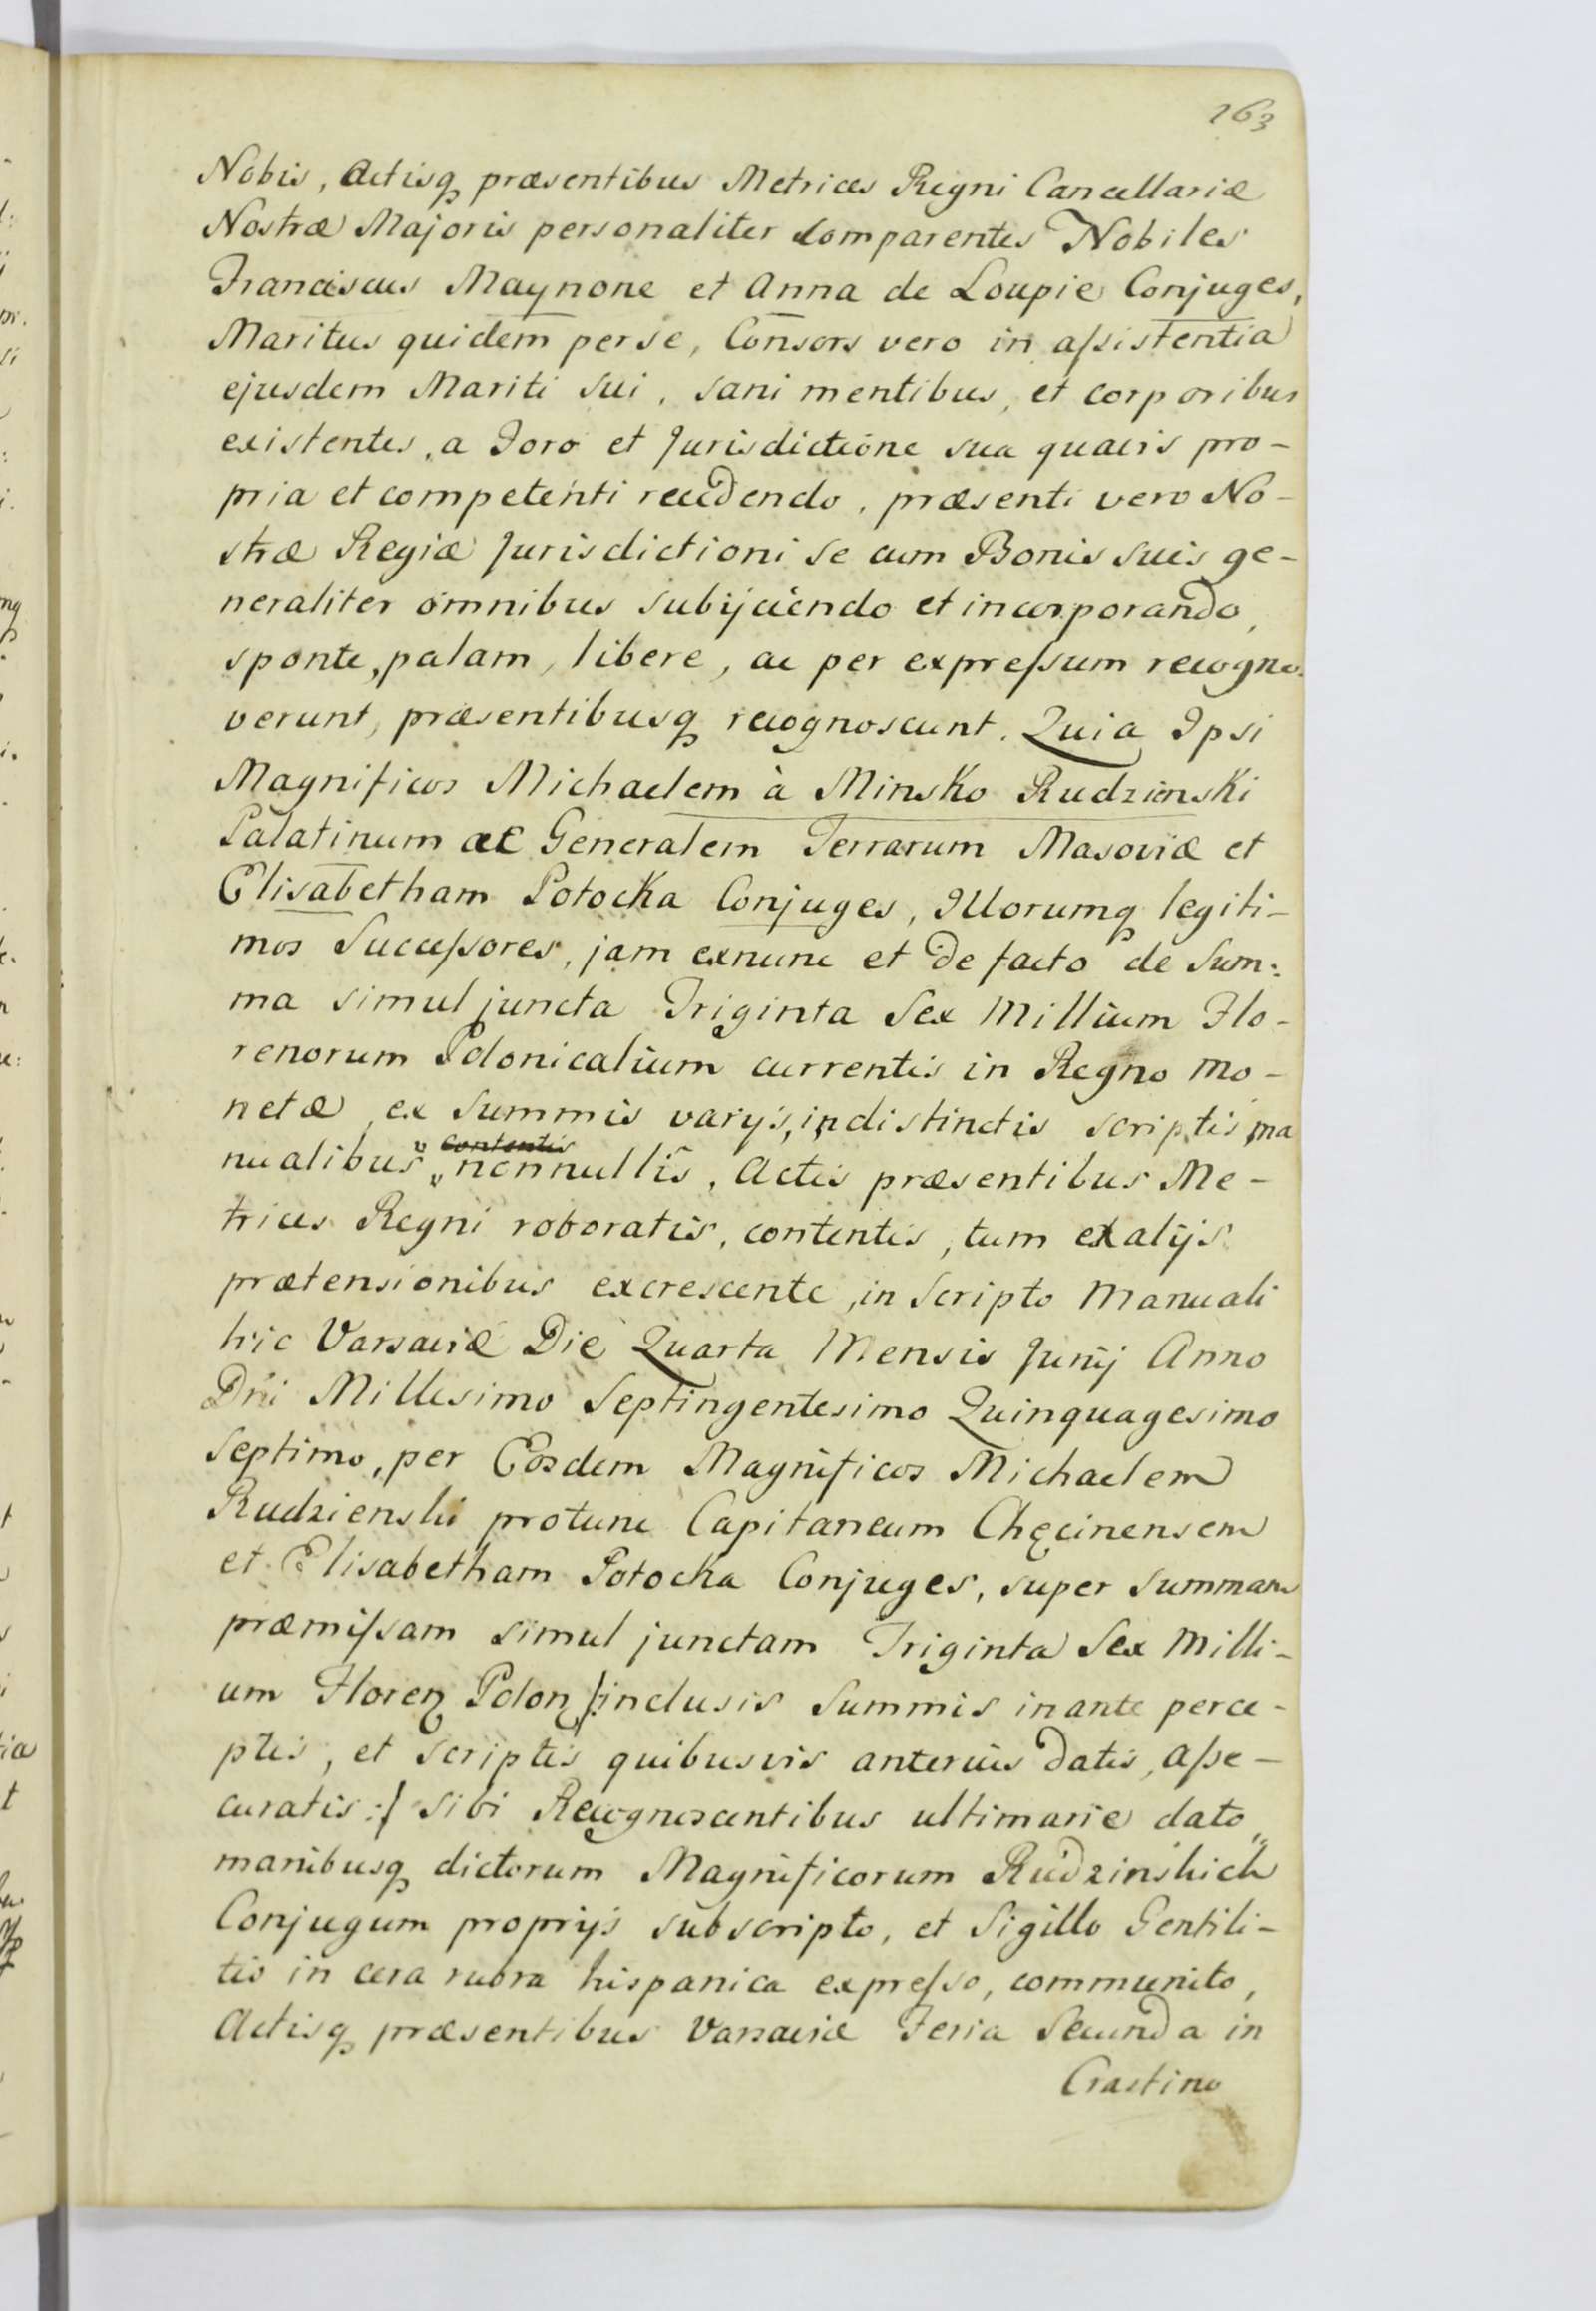 163
Nobis, Actisq præsentibus Metrices Regni Cancellariæ
Nostræ Majoris personaliter comparentes Nobiles
Franciscus Maynone et Anna de Loupie Conjuges,
Maritus quidem per se, Consors vero in aſsistentia
ejusdem Mariti sui, sani mentibus, et corporibus
existentes, a Foro et Jurisdictione sua quavis pro-
pria et competenti recedendo, præsenti vero No-
stræ Regiæ Jurisdictioni se cum Bonis suis ge-
neraliter omnibus subijciendo et incorporando,
sponte, palam, libere, ac per expreſsum recogno-
verunt, præsentibusq recognoscunt. Quia Ipsi
Magnificos Michaelem à Minsko Rudzienski
Palatinum ac Generalem Terrarum Masoviæ et
Elisabetham Potocka Conjuges, Illorumq legiti-
mos Succeſsores, jam exnunc et de facto de Sum:
ma simul juncta Triginta Sex Millium Flo-
renorum Polonicalium currentis in Regno mo-
netæ, ex Summis varijs, indistinctis scriptis ma
nualibus contentis nonnullis, Actis præsentibus Me-
trices Regni roboratis, contentis, tum ex alijs
prætensionibus excrescente, in Scripto Manuali
hic Varsaviæ Die Quarta Mensis Junij Anno
Dni Millesimo Septingentesimo Quinquagesimo
Septimo, per Eosdem Magnificos Michaelem
Rudzienski protunc Capitaneum Chęcinensem
et Elisabetham Potocka Conjuges, super Summam
præmiſsam simul junctam Triginta Sex Milli-
um Floren Polon /:inclusis Summis in ante perce-
ptis, et scriptis quibusvis anterius datis, aſse-
curatis:/ sibi Recognoscentibus ultimarie dato
manibusq dictorum Magnificorum Rudzinskich
Conjugum proprijs subscripto, et Sigillo Gentili-
tio in cera rubra hispanica expreſso, communito,
Actisq præsentibus Varsaviæ Feria Secunda in
Crastino